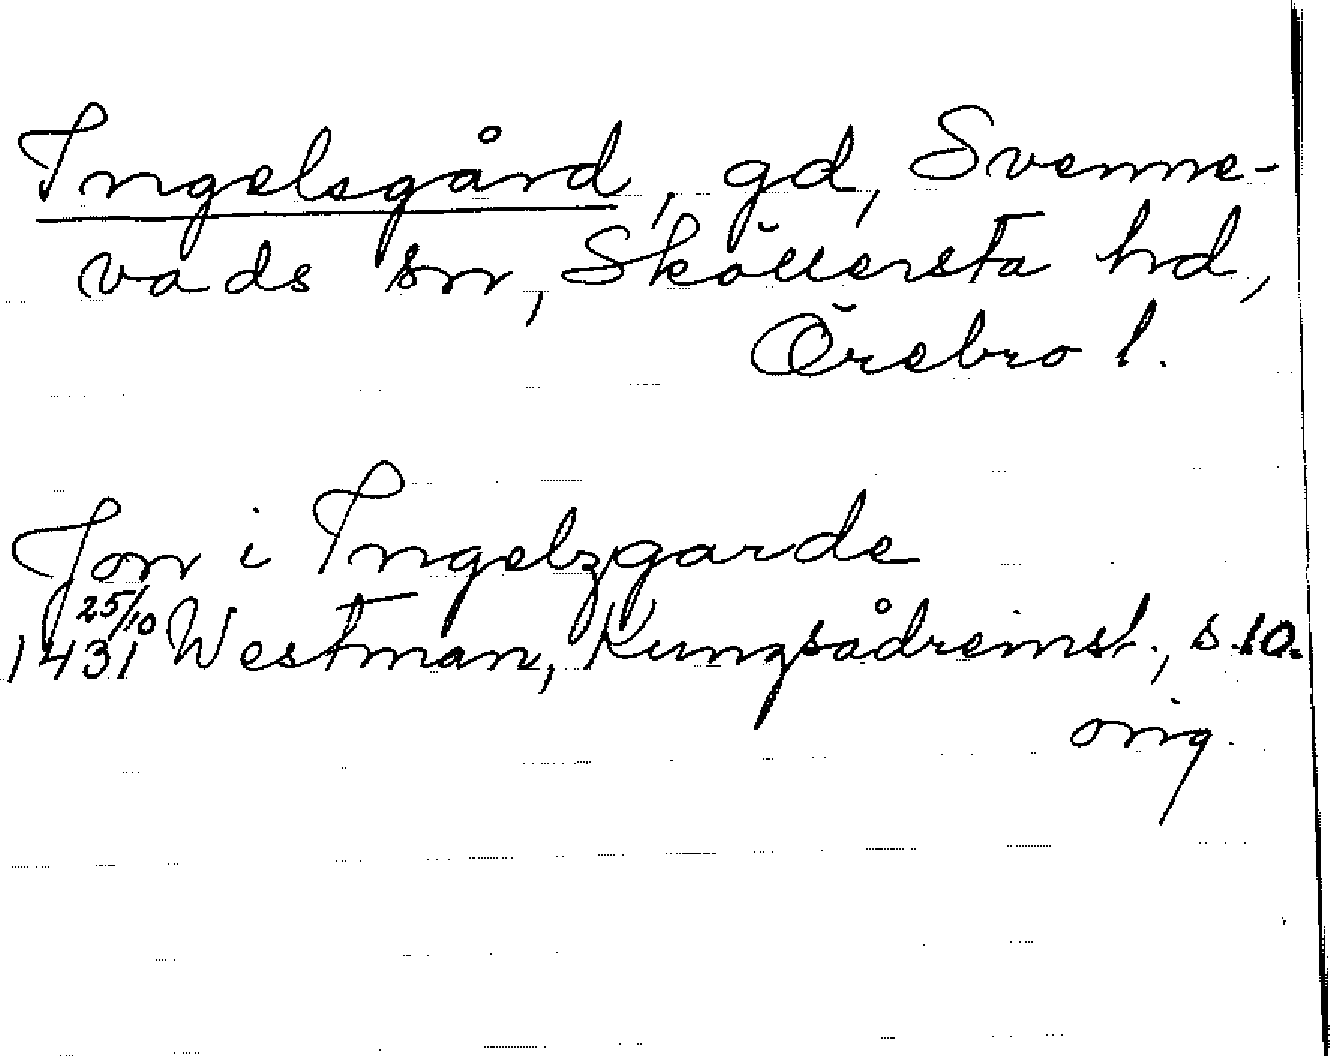 Ingelsgård, gd, Svenne-
vads sn, Sköllersta hd,
Örebro l.
Jon i Ingelzgarde
1431 25/10 Westman, Kungsådreinst., s. 10.
orig.